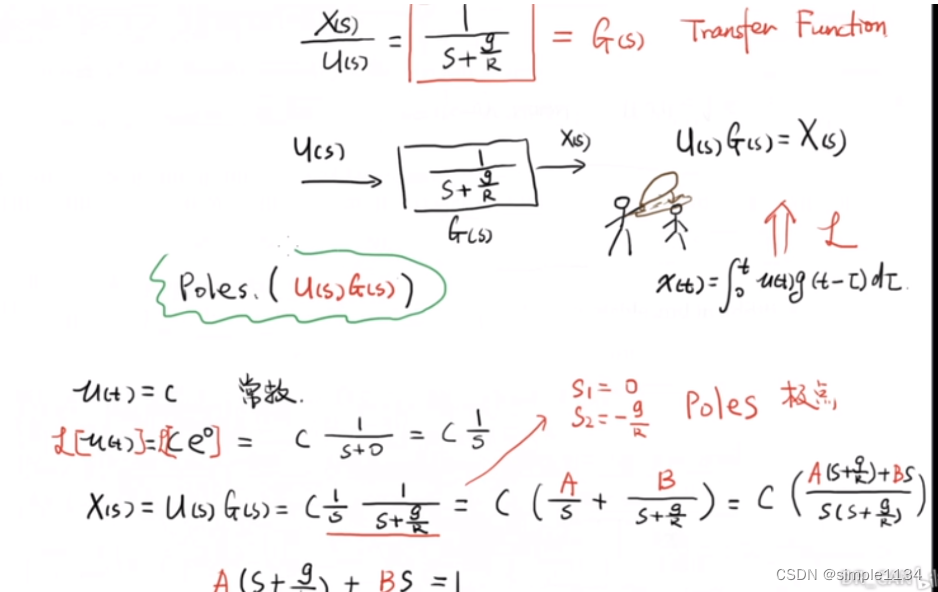 X(s)/U(s) = 1/(s + g/R) = G(s) Transfer Function
U(s) → 1/(s + g/R) → X(s)
G(s)
U(s)G(s) = X(s)
⇑ ℒ
x(t) = ∫₀ᵗ u(τ)g(t-τ)dτ.
Poles. (U(s)G(s))
u(t) = C 常数.
S₁ = 0
S₂ = -g/R
Poles 极点
ℒ[u(t)] = ℒ[Ce⁰] = C 1/(s+0) = C 1/s
X(s) = U(s)G(s) = C 1/s 1/(s + g/R) = C (A/s + B/(s + g/R)) = C (A(s + g/R) + Bs)/(s(s + g/R))
A(s + g/R) + Bs = 1
CSDN @simple1134